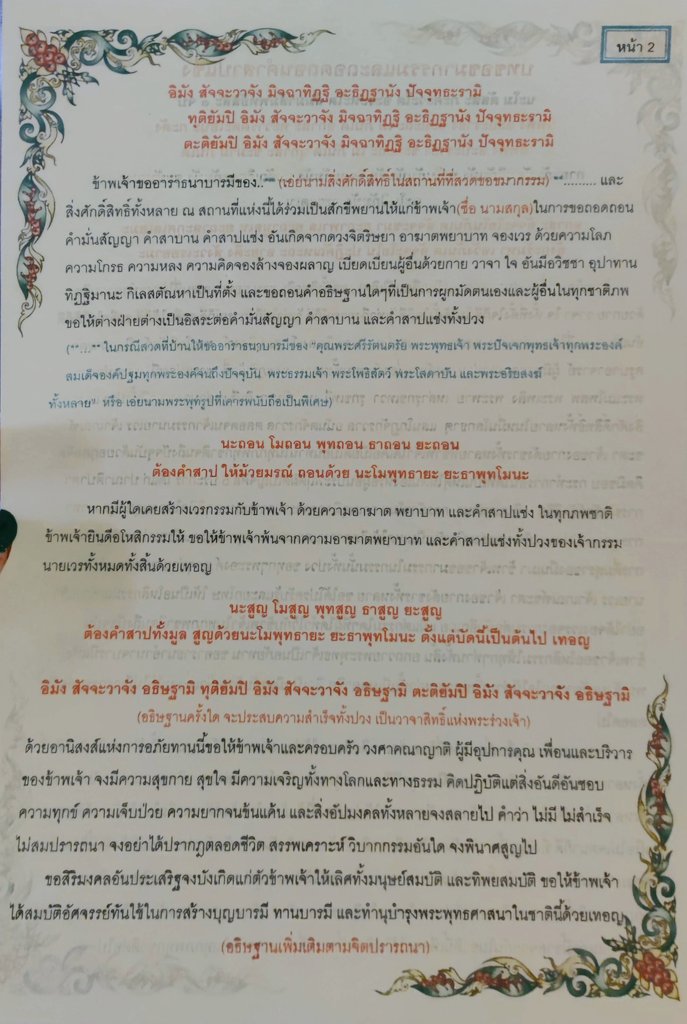 หน้า 2
อิมัง สัจจะวาจัง มิจฉาทิฏฐิ อะธิฏฐานัง ปัจจุทธะรามิ
ทุติยัมปิ อิมัง สัจจะวาจัง มิจฉาทิฏฐิ อะธิฏฐานัง ปัจจุทธะรามิ
ตะติยัมปิ อิมัง สัจจะวาจัง มิจฉาทิฏฐิ อะธิฏฐานัง ปัจจุทธะรามิ
ข้าพเจ้าขออาราธนาบารมีของ..** (เอ่ยนามสิ่งศักดิ์สิทธิ์ในสถานที่ที่สวดขอขมากรรม) **......... และ
สิ่งศักดิ์สิทธิ์ทั้งหลาย ณ สถานที่แห่งนี้ได้ร่วมเป็นสักขีพยานให้แก่ข้าพเจ้า(ชื่อ นามสกุล)ในการขอถอดถอน
คำมั่นสัญญา คำสาบาน คำสาปแช่ง อันเกิดจากดวงจิตริษยา อาฆาตพยาบาท จองเวร ด้วยความโลภ
ความโกรธ ความหลง ความคิดจองล้างจองผลาญ เบียดเบียนผู้อื่นด้วยกาย วาจา ใจ อันมีอวิชชา อุปาทาน
ทิฏฐิมานะ กิเลสตัณหาเป็นที่ตั้ง และขอถอนคำอธิษฐานใดๆที่เป็นการผูกมัดตนเองและผู้อื่นในทุกชาติภพ
ขอให้ต่างฝ่ายต่างเป็นอิสระต่อคำมั่นสัญญา คำสาบาน และคำสาปแช่งทั้งปวง
(**...** ในกรณีสวดที่บ้านให้ขออาราธนาบารมีของ "คุณพระศรีรัตนตรัย พระพุทธเจ้า พระปัจเจกพุทธเจ้าทุกพระองค์
สมเด็จองค์ปฐมทุกพระองค์จนถึงปัจจุบัน พระธรรมเจ้า พระโพธิสัตว์ พระโสดาบัน และพระอริยสงฆ์
ทั้งหลาย" หรือ เอ่ยนามพระพุทธรูปที่เคารพนับถือเป็นพิเศษ)
นะถอน โมถอน พุทถอน ธาถอน ยะถอน
ต้องคำสาป ให้ม้วยมรณ์ ถอนด้วย นะโมพุทธายะ ยะธาพุทโมนะ
หากมีผู้ใดเคยสร้างเวรกรรมกับข้าพเจ้า ด้วยความอาฆาด พยาบาท และคำสาปแช่ง ในทุกภพชาติ
ข้าพเจ้ายินดีอโหสิกรรมให้ ขอให้ข้าพเจ้าพ้นจากความอาฆาตพยาบาท และคำสาปแช่งทั้งปวงของเจ้ากรรม
นายเวรทั้งหมดทั้งสิ้นด้วยเทอญ
นะสูญ โมสูญ พุทสูญ ธาสูญ ยะสูญ
ต้องคำสาปทั้งมูล สูญด้วยนะโมพุทธายะ ยะธาพุทโมนะ ตั้งแต่บัดนี้เป็นต้นไป เทอญ
อิมัง สัจจะวาจัง อธิษฐามิ ทุติยัมปิ อิมัง สัจจะวาจัง อธิษฐามิ ตะติยัมปิ อิมัง สัจจะวาจัง อธิษฐามิ
(อธิษฐานครั้งใด จะประสบความสำเร็จทั้งปวง เป็นวาจาสิทธิ์แห่งพระร่วงเจ้า)
ด้วยอานิสงส์แห่งการอภัยทานนี้ขอให้ข้าพเจ้าและครอบครัว วงศาคณาญาติ ผู้มีอุปการคุณ เพื่อนและบริวาร
ของข้าพเจ้า จงมีความสุขกาย สุขใจ มีความเจริญทั้งทางโลกและทางธรรม คิดปฏิบัติแต่สิ่งอันดีอันชอบ
ความทุกข์ ความเจ็บป่วย ความยากจนข้นแค้น และสิ่งอัปมงคลทั้งหลายจงสลายไป คำว่า ไม่มี ไม่สำเร็จ
ไม่สมปรารถนา จงอย่าได้ปรากฏตลอดชีวิต สรรพเคราะห์ วิบากกรรมอันใด จงพินาศสูญไป
ขอสิริมงคลอันประเสริฐจงบังเกิดแก่ตัวข้าพเจ้าให้เลิศทั้งมนุษย์สมบัติ และทิพยสมบัติ ขอให้ข้าพเจ้า
ได้สมบัติอัศจรรย์ทันใช้ในการสร้างบุญบารมี ทานบารมี และทำนุบำรุงพระพุทธศาสนาในชาตินี้ด้วยเทอญ
(อธิษฐานเพิ่มเติมตามจิตปรารถนา)